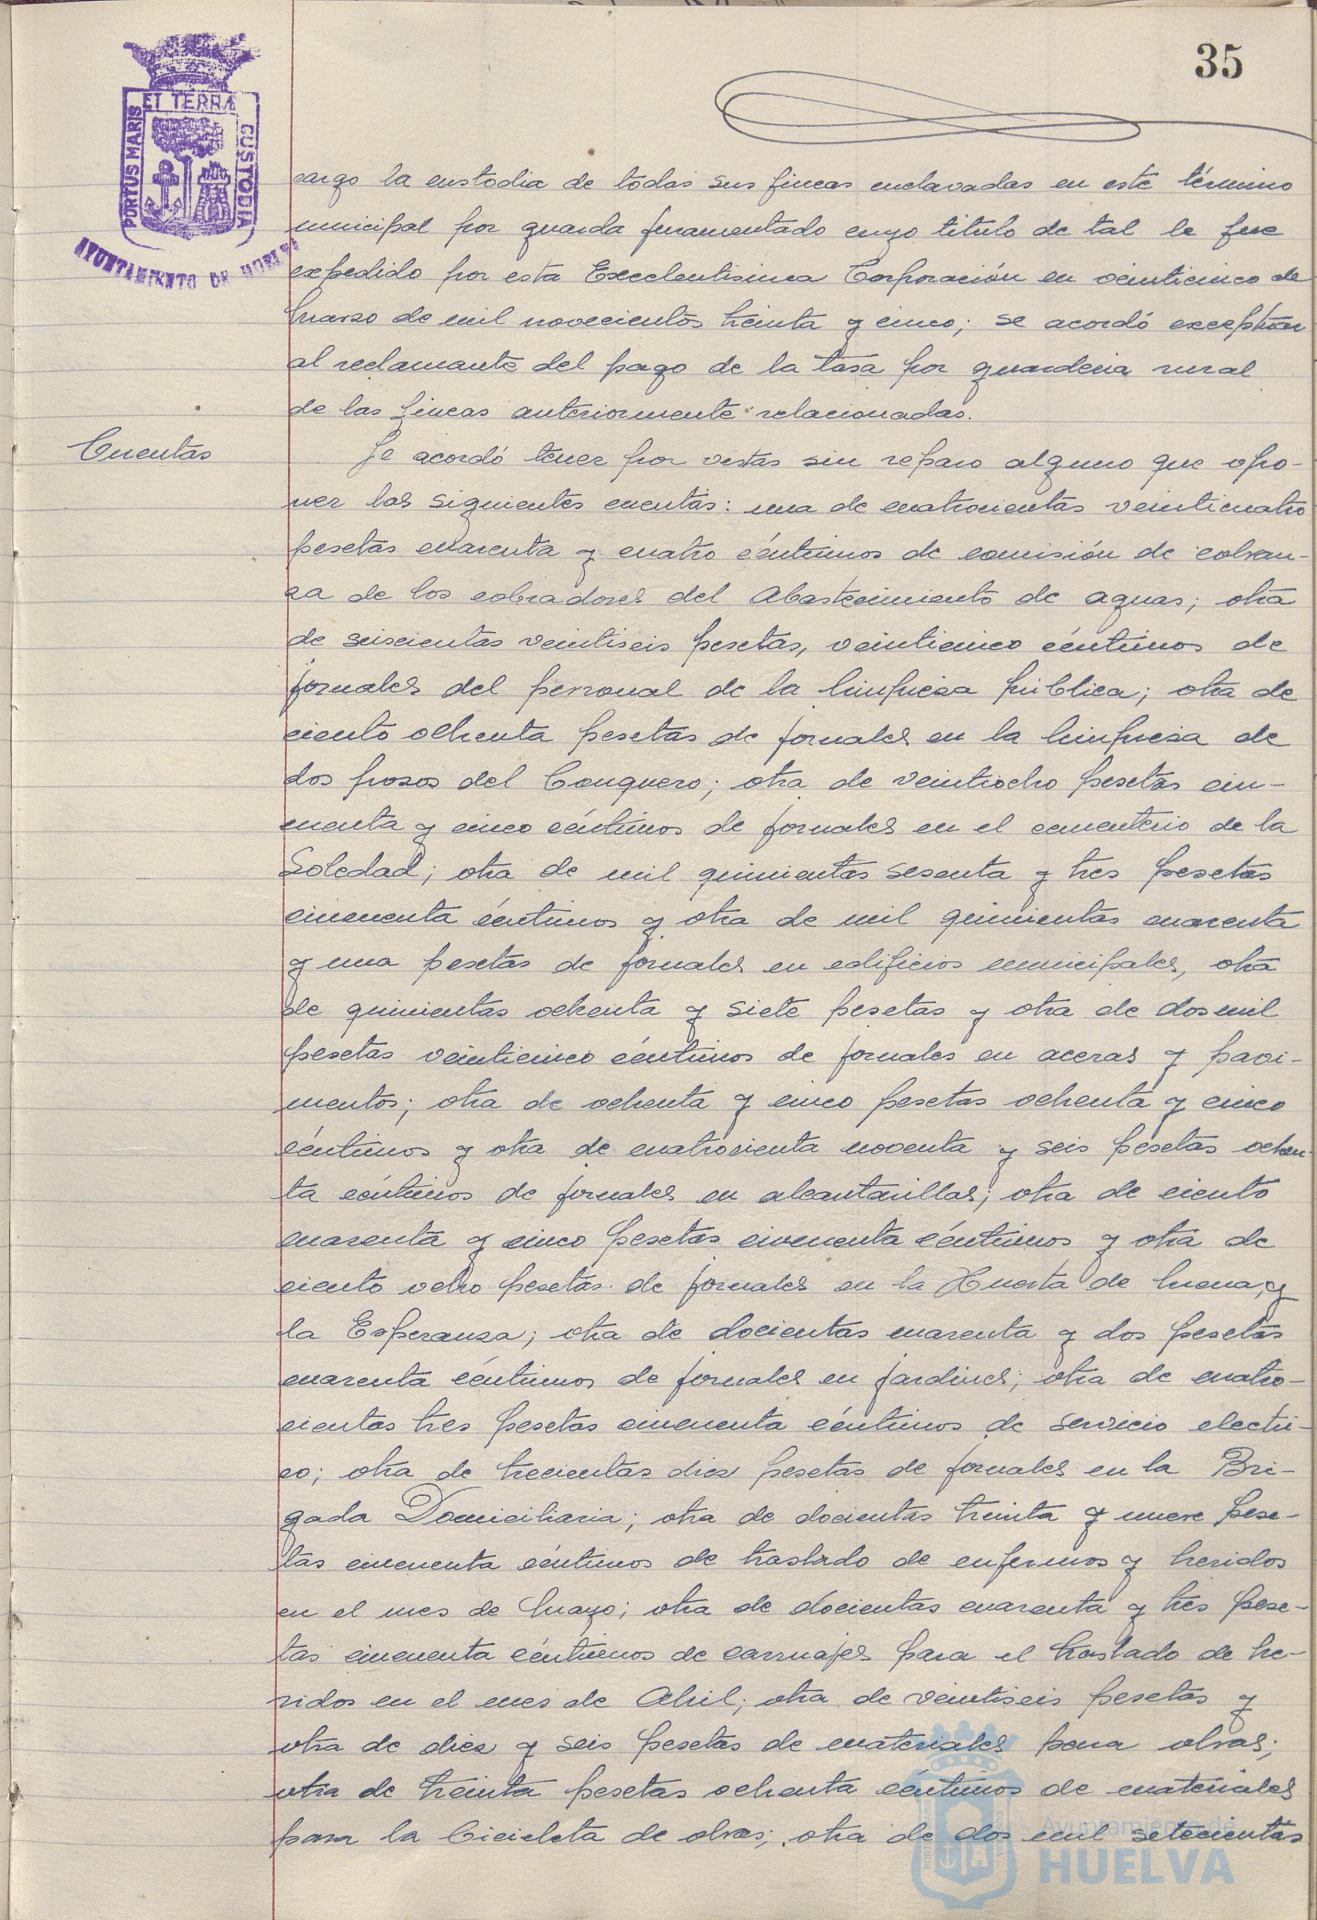 35
ET TERRA
PORTUS MARIS
CUSTODIA
AYUNTAMIENTO DE HUELVA
cargo la custodia de todas sus fincas enclavadas en este término
municipal por guarda juramentado cuyo titulo de tal le fue
expedido por esta Excelentisima Corporación en veinticinco de
Marzo de mil novecientos treinta y cinco; se acordó exceptuar
al reclamante del pago de la tasa por guarderia rural
de las fincas anteriormente relacionadas.
Cuentas
Se acordó tener por vistas sin reparo alguno que opo-
ner las siguientes cuentas: una de cuatrocientas veinticuatro
pesetas cuarenta y cuatro céntimos de comisión de cobran-
za de los cobradores del Abastecimiento de aguas; otra
de seiscientas veintiseis pesetas, veinticinco céntimos de
jornales del personal de la limpieza pública; otra de
ciento ochenta pesetas de jornales en la limpieza de
dos pozos del Conquero; otra de veintiocho pesetas cin-
cuenta y cinco céntimos de jornales en el cementerio de la
Soledad; otra de mil quinientas sesenta y tres pesetas
cincuenta céntimos y otra de mil quinientas cuarenta
y una pesetas de jornales en edificios municipales, otra
de quinientas ochenta y siete pesetas y otra de dos mil
pesetas veinticinco céntimos de jornales en aceras y pavi-
mentos; otra de ochenta y cinco pesetas ochenta y cinco
céntimos y otra de cuatrocienta noventa y seis pesetas ochen-
ta céntimos de jornales en alcantarillas; otra de ciento
cuarenta y cinco pesetas cincuenta céntimos y otra de
ciento ocho pesetas de jornales en la Huerta de Mena, y
la Esperanza; otra de docientas cuarenta y dos pesetas
cuarenta céntimos de jornales en jardines; otra de cuatro-
cientas tres pesetas cincuenta céntimos de servicio electri-
co; otra de trecientas diez pesetas de jornales en la Bri-
gada Domiciliaria; otra de docientas treinta y nueve pese-
tas cincuenta céntimos de traslado de enfermos y heridos
en el mes de Mayo; otra de docientas cuarenta y tres pese-
tas cincuenta céntimos de carruajes para el traslado de he-
ridos en el mes de Abril; otra de veintiseis pesetas y
otra de diez y seis pesetas de materiales para obras;
otra de treinta pesetas ochenta centimos de materiales
para la bicicleta de obras; otra de dos mil setecientas
Ayuntamiento de
HUELVA